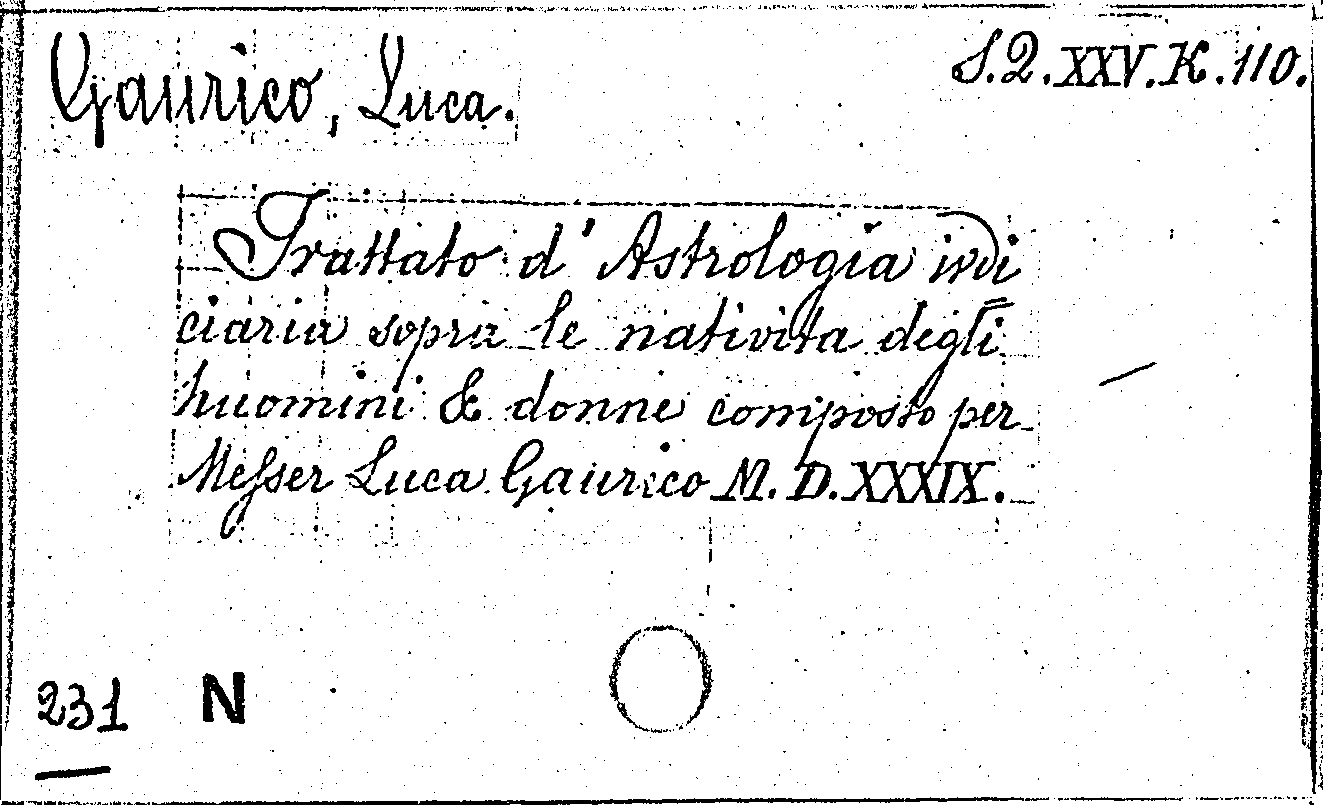 Gaurico, Luca.
S.Q.XXV.K.110.
Trattato d' Astrologia iudi
ciaria sopra le nativita degli
huomini & donne composto per
Messer Luca Gaurico M.D.XXXIX.
231 N